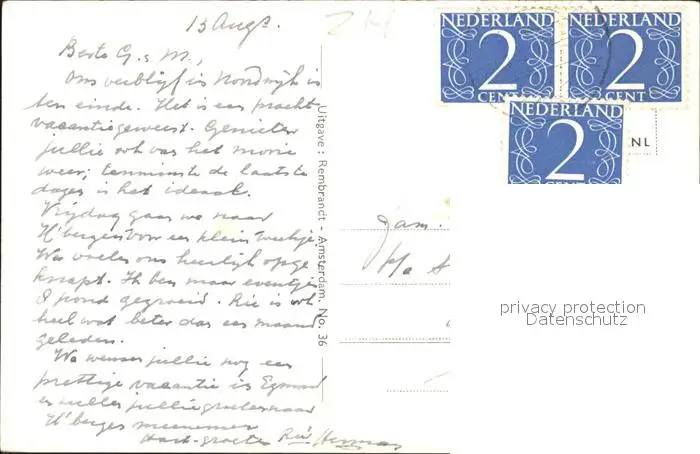 13 Aug.
Beste G. & M.,
Ons verblijf in Noordwijk is
ten einde. Het is een pracht
vacantie geweest. Genieten
jullie ook van het mooie
weer; tenminste de laatste
dagen is het ideaal.
Vrijdag gaan we naar
H'bergen voor een klein weekje.
We voelen ons heerlijk opge
knapt. Ik ben maar eventjes
8 pond gegroeid. Rie is ook
heel wat beter dan een maand
geleden.
We wensen jullie nog een
prettige vacantie in Egmond
en zullen jullie groeten naar
H'bergen meenemen
Hart. groeten Rie Herman
Uitgave: Rembrandt - Amsterdam. No. 36
NEDERLAND
2
CENT
NEDERLAND
2
CENT
NEDERLAND
2
CENT
NL
Fam.
p/a
privacy protection
Datenschutz